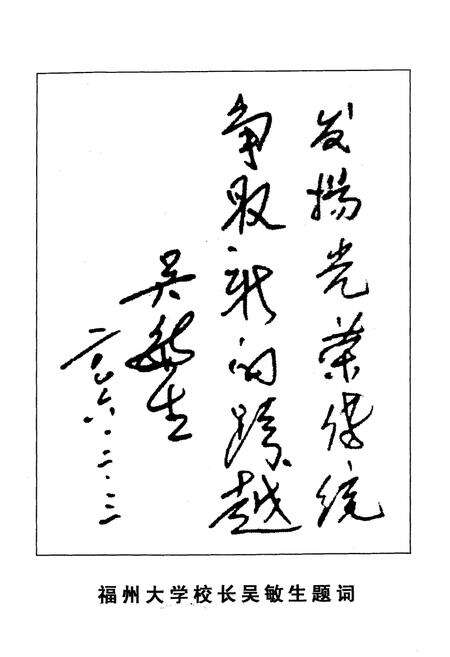 发扬光荣传统
争取新的跨越
吴敏生
二〇〇六.二.三
福州大学校长吴敏生题词